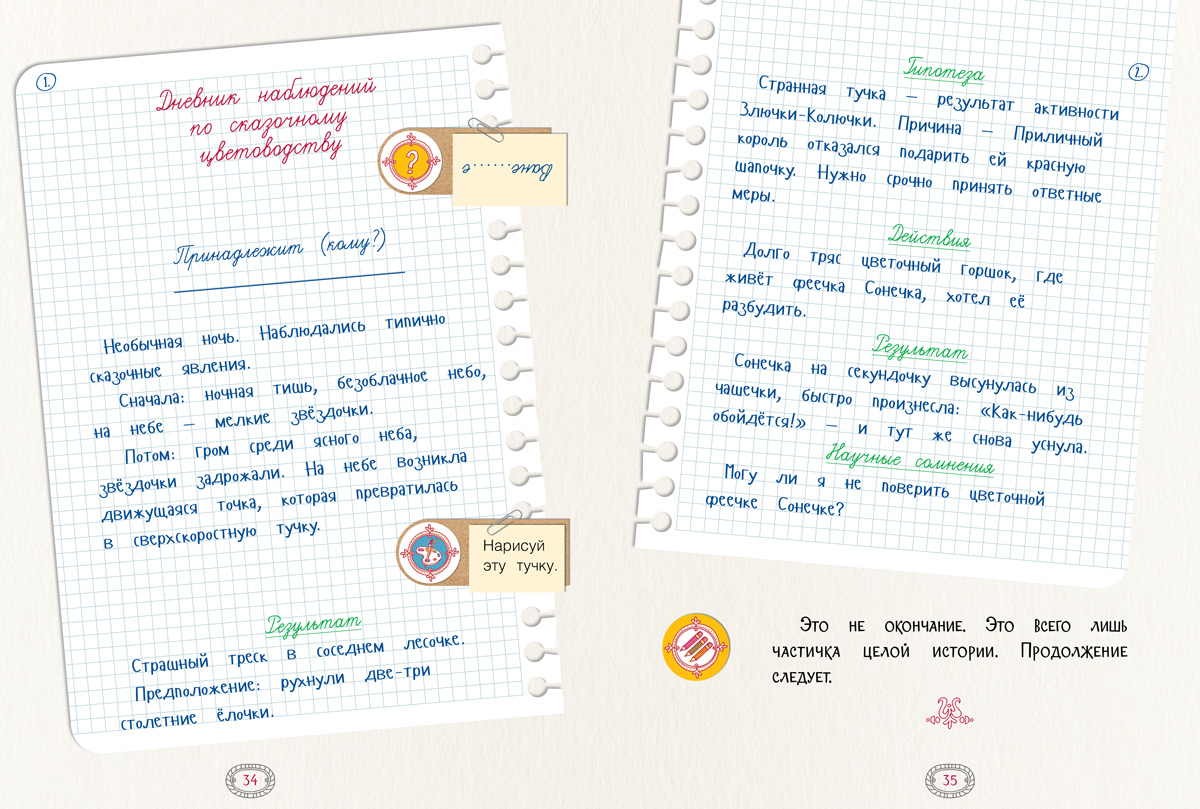 1.
Дневник наблюдений
по сказочному
цветоводству
Ване.....е
Принадлежит (кому?)
Необычная ночь. Наблюдались типично
сказочные явления.
Сначала: ночная тишь, безоблачное небо,
на небе — мелкие звёздочки.
Потом: гром среди ясного неба,
звёздочки задрожали. На небе возникла
движущаяся точка, которая превратилась
в сверхскоростную тучку.
Нарисуй
эту тучку.
Результат
Страшный треск в соседнем лесочке.
Предположение: рухнули две-три
столетние ёлочки.
34
2.
Гипотеза
Странная тучка — результат активности
Злючки-Колючки. Причина — Приличный
король отказался подарить ей красную
шапочку. Нужно срочно принять ответные
меры.
Действия
Долго тряс цветочный горшок, где
живёт феечка Сонечка, хотел её
разбудить.
Результат
Сонечка на секундочку высунулась из
чашечки, быстро произнесла: «Как-нибудь
обойдётся!» — и тут же снова уснула.
Научные сомнения
Могу ли я не поверить цветочной
феечке Сонечке?
Это не окончание. Это всего лишь
частичка целой истории. Продолжение
следует.
35